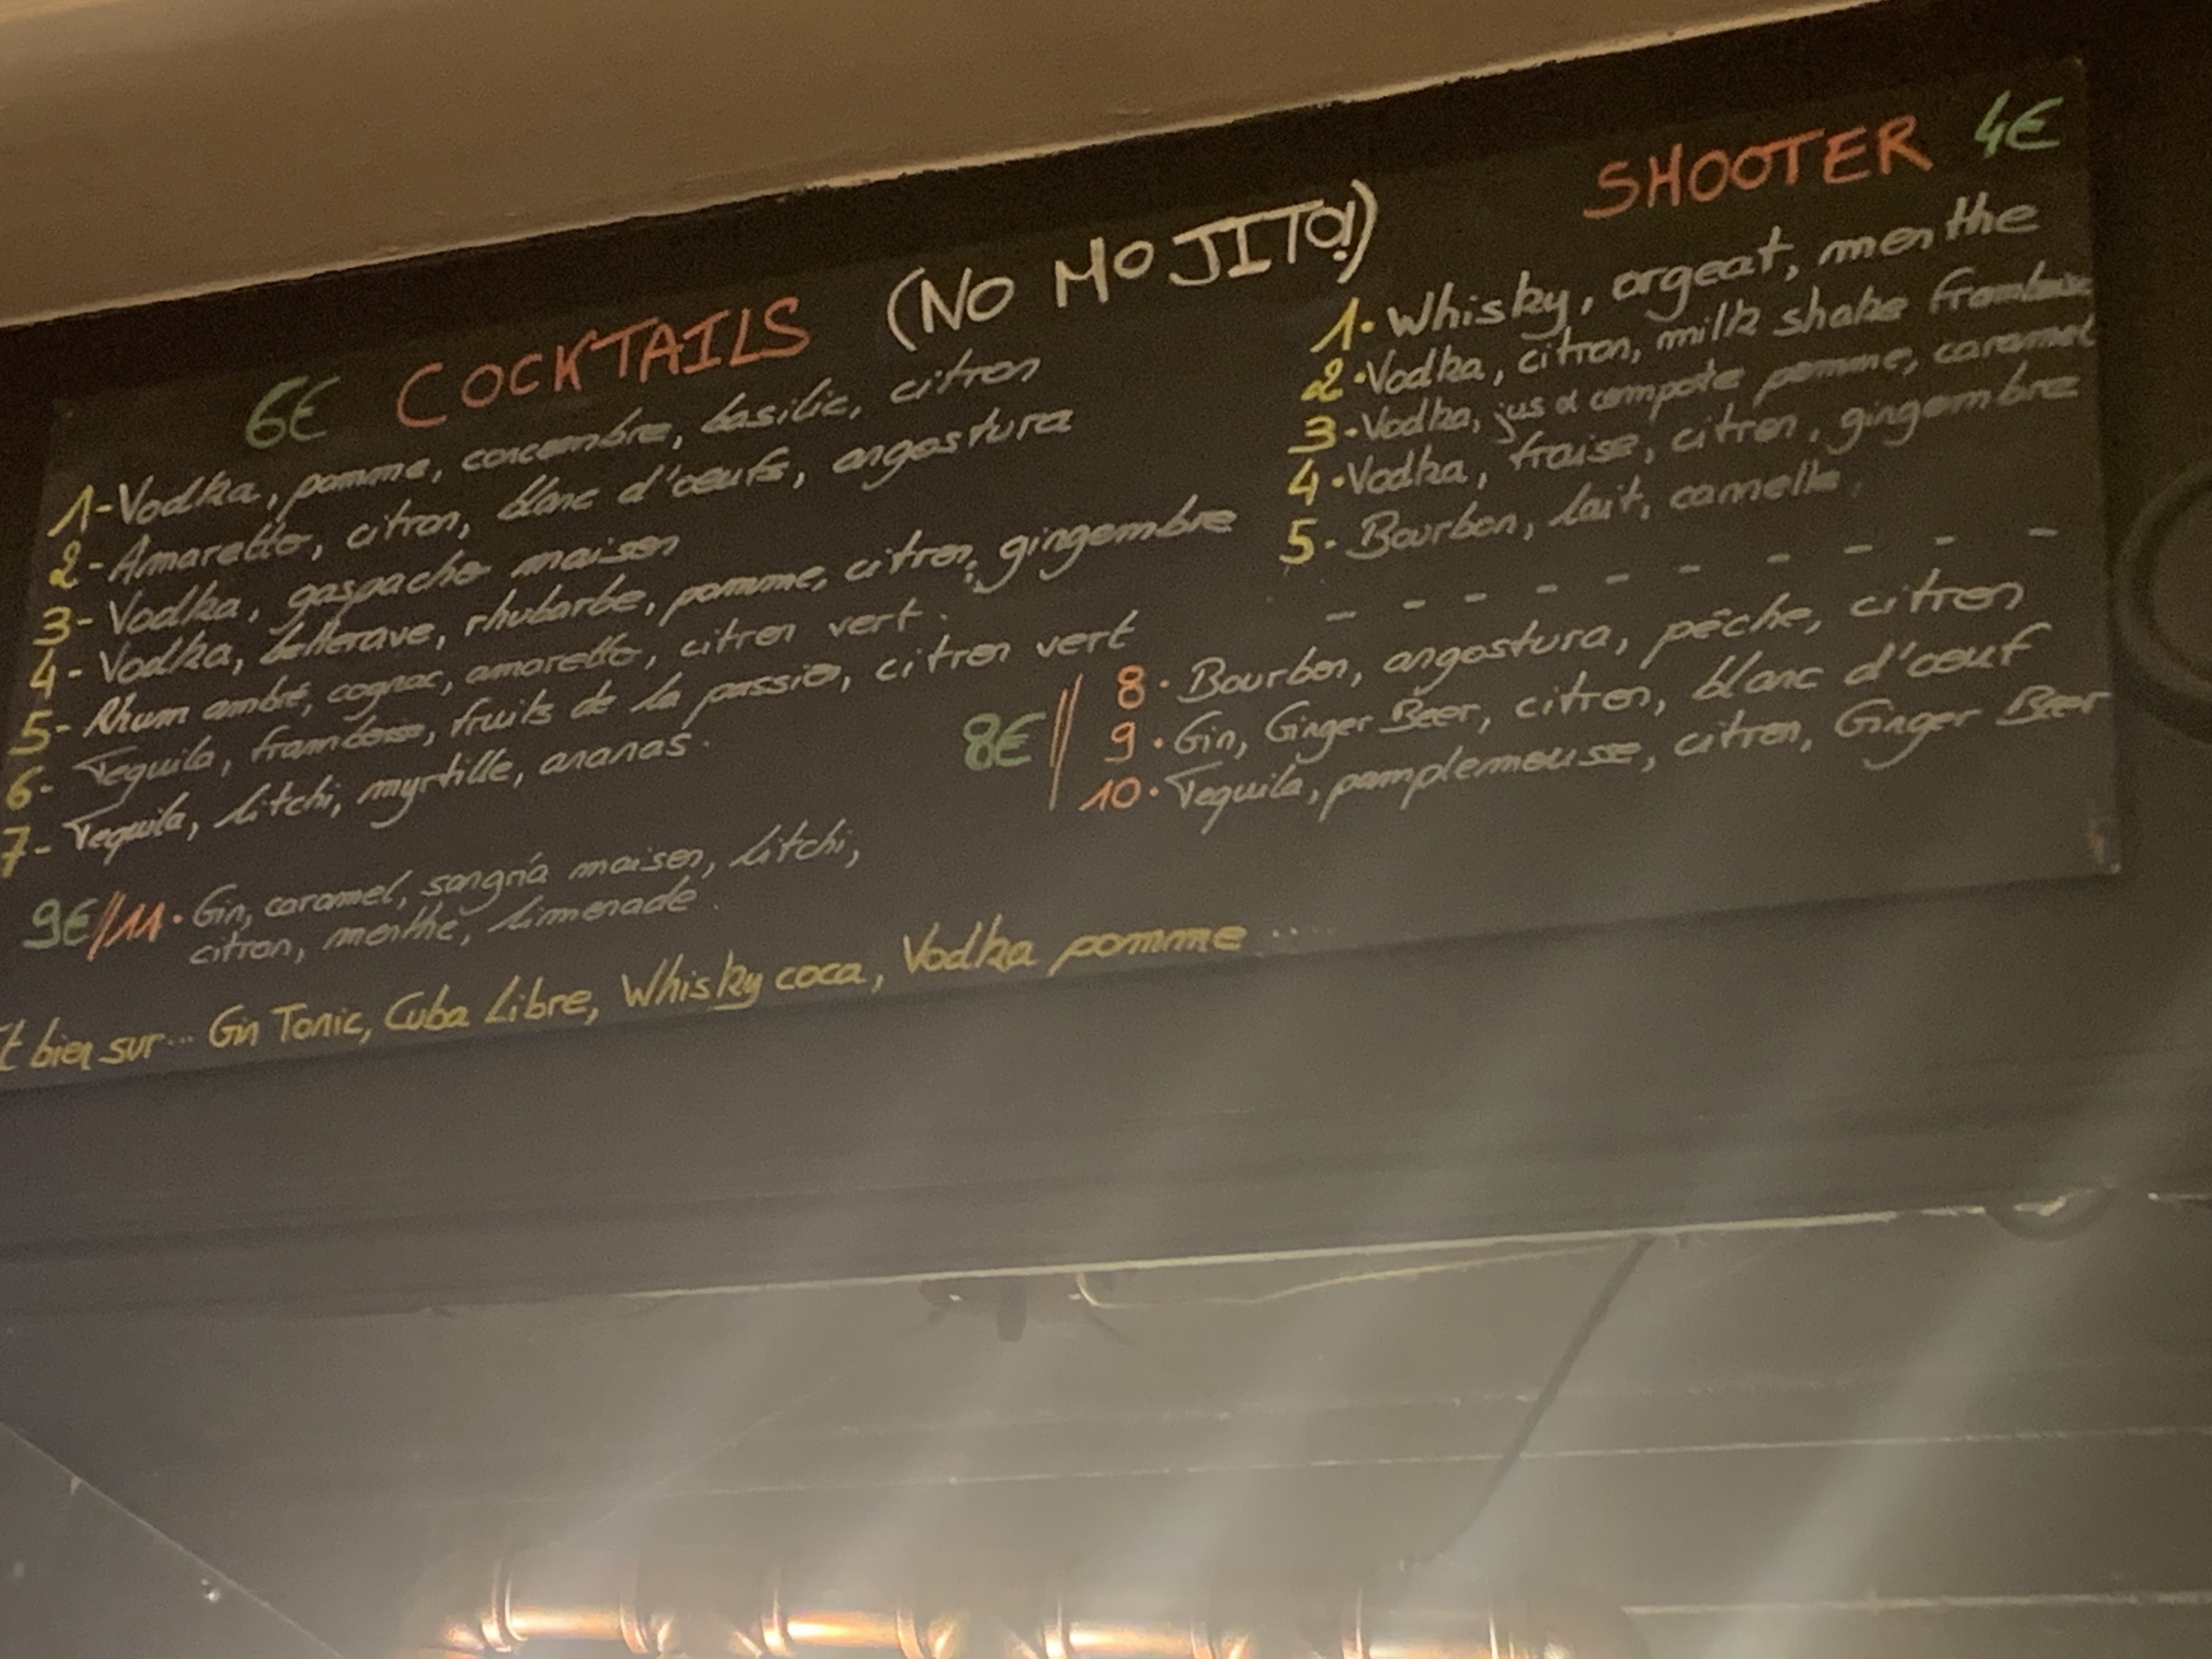 6€ COCKTAILS (NO MOJITO!)
1- Vodka, pomme, concombre, basilic, citron
2- Amaretto, citron, blanc d'oeufs, angostura
3- Vodka, gaspacho maison
4- Vodka, betterave, rhubarbe, pomme, citron, gingembre
5- Rhum ambré, cognac, amaretto, citron vert.
6- Tequila, framboise, fruits de la passion, citron vert
7- Tequila, litchi, myrtille, ananas.
9€ // 11. Gin, caramel, sangria maison, litchi,
citron, menthe, limonade.
Et bien sur... Gin Tonic, Cuba Libre, Whisky coca, Vodka pomme .....
SHOOTER 4€
1. Whisky, orgeat, menthe
2. Vodka, citron, milk shake framboise
3. Vodka, jus & compote pomme, caramel
4. Vodka, fraise, citron, gingembre
5. Bourbon, lait, cannelle,
8€ // 8. Bourbon, angostura, pêche, citron
9. Gin, Ginger Beer, citron, blanc d'oeuf
10. Tequila, pamplemousse, citron, Ginger Beer